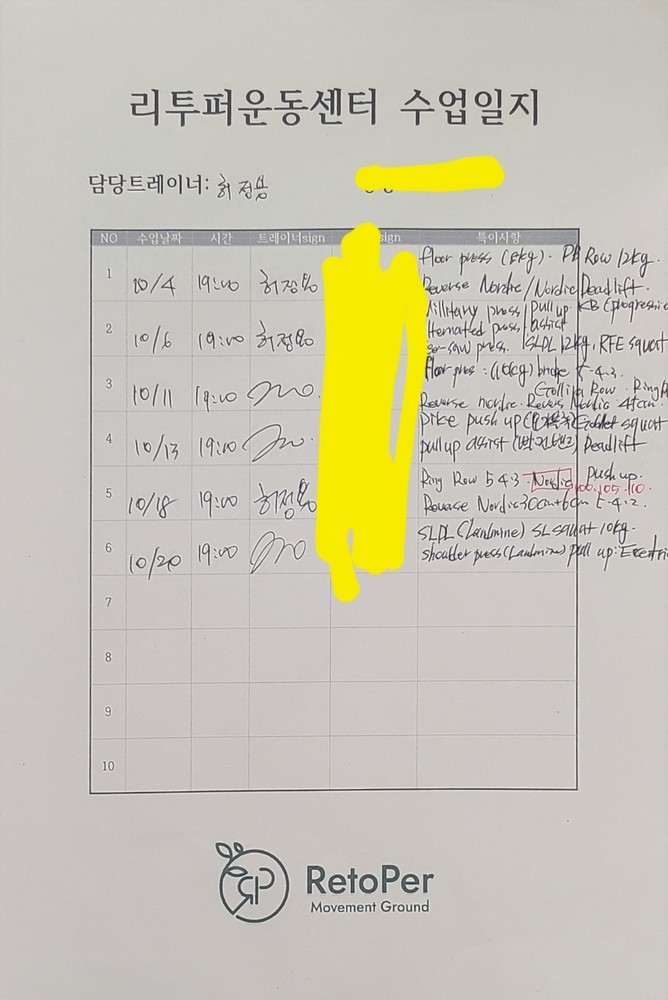 리투퍼운동센터 수업일지
담당트레이너: 허정용
NO 수업날짜 시간 트레이너sign sign 특이사항
1 10/4 19:00 허정용 floor press (8kg) · DB Row 12kg.
Reverse Nordic / Nordic Deadlift.
2 10/6 19:00 허정용 Military press pull up KB
press assist
press. SLDL 12kg, RFE squat
3 10/11 19:00 floor press : (10kg) bridge 5-4-3.
Row · Ring
Reverse nordic. Nordic
4 10/13 19:00 pike push up squat
pull up assist Deadlift
5 10/18 19:00 허정용 Ring Row 5 4·3 Nordic push up.
100. 105. 110.
Reverse Nordic 30cm+6cm 5-4-2.
6 10/20 19:00 SLDL (Landmine) SL squat 10kg.
shoulder press (Landmine) pull up:
7
8
9
10
RetoPer
Movement Ground